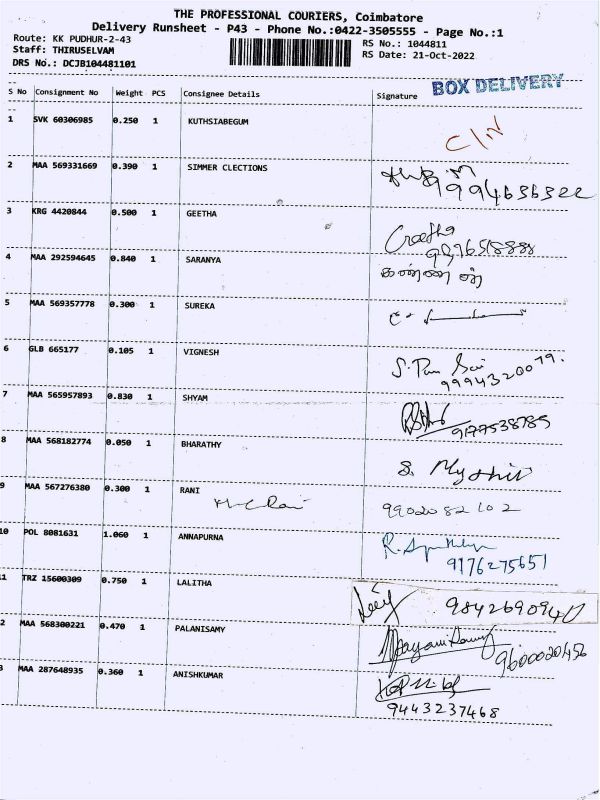 THE PROFESSIONAL COURIERS, Coimbatore
Delivery Runsheet - P43 - Phone No.:0422-3505555 - Page No.:1
Route: KK PUDHUR-2-43
RS No.: 1044811
Staff: THIRUSELVAM
RS Date: 21-Oct-2022
DRS No.: DCJB104481101
BOX DELIVERY
S No Consignment No Weight PCS Consignee Details Signature
1 SVK 60306985 0.250 1 KUTHSIABEGUM
C/N
2 MAA 569331669 0.390 1 SIMMER CLECTIONS
9994636322
3 KRG 4420844 0.500 1 GEETHA
Geetha
4 MAA 292594645 0.840 1 SARANYA
கண்ணன்
5 MAA 569357778 0.300 1 SUREKA
6 GLB 665177 0.105 1 VIGNESH
9994320079.
7 MAA 565957893 0.830 1 SHYAM
8 MAA 568182774 0.050 1 BHARATHY
9 MAA 567276380 0.300 1 RANI
9902082102
10 POL 8081631 1.060 1 ANNAPURNA
9176275651
1 TRZ 15600309 0.750 1 LALITHA
9842690940
2 MAA 568300221 0.470 1 PALANISAMY
9600020456
3 MAA 287648935 0.360 1 ANISHKUMAR
9443237468